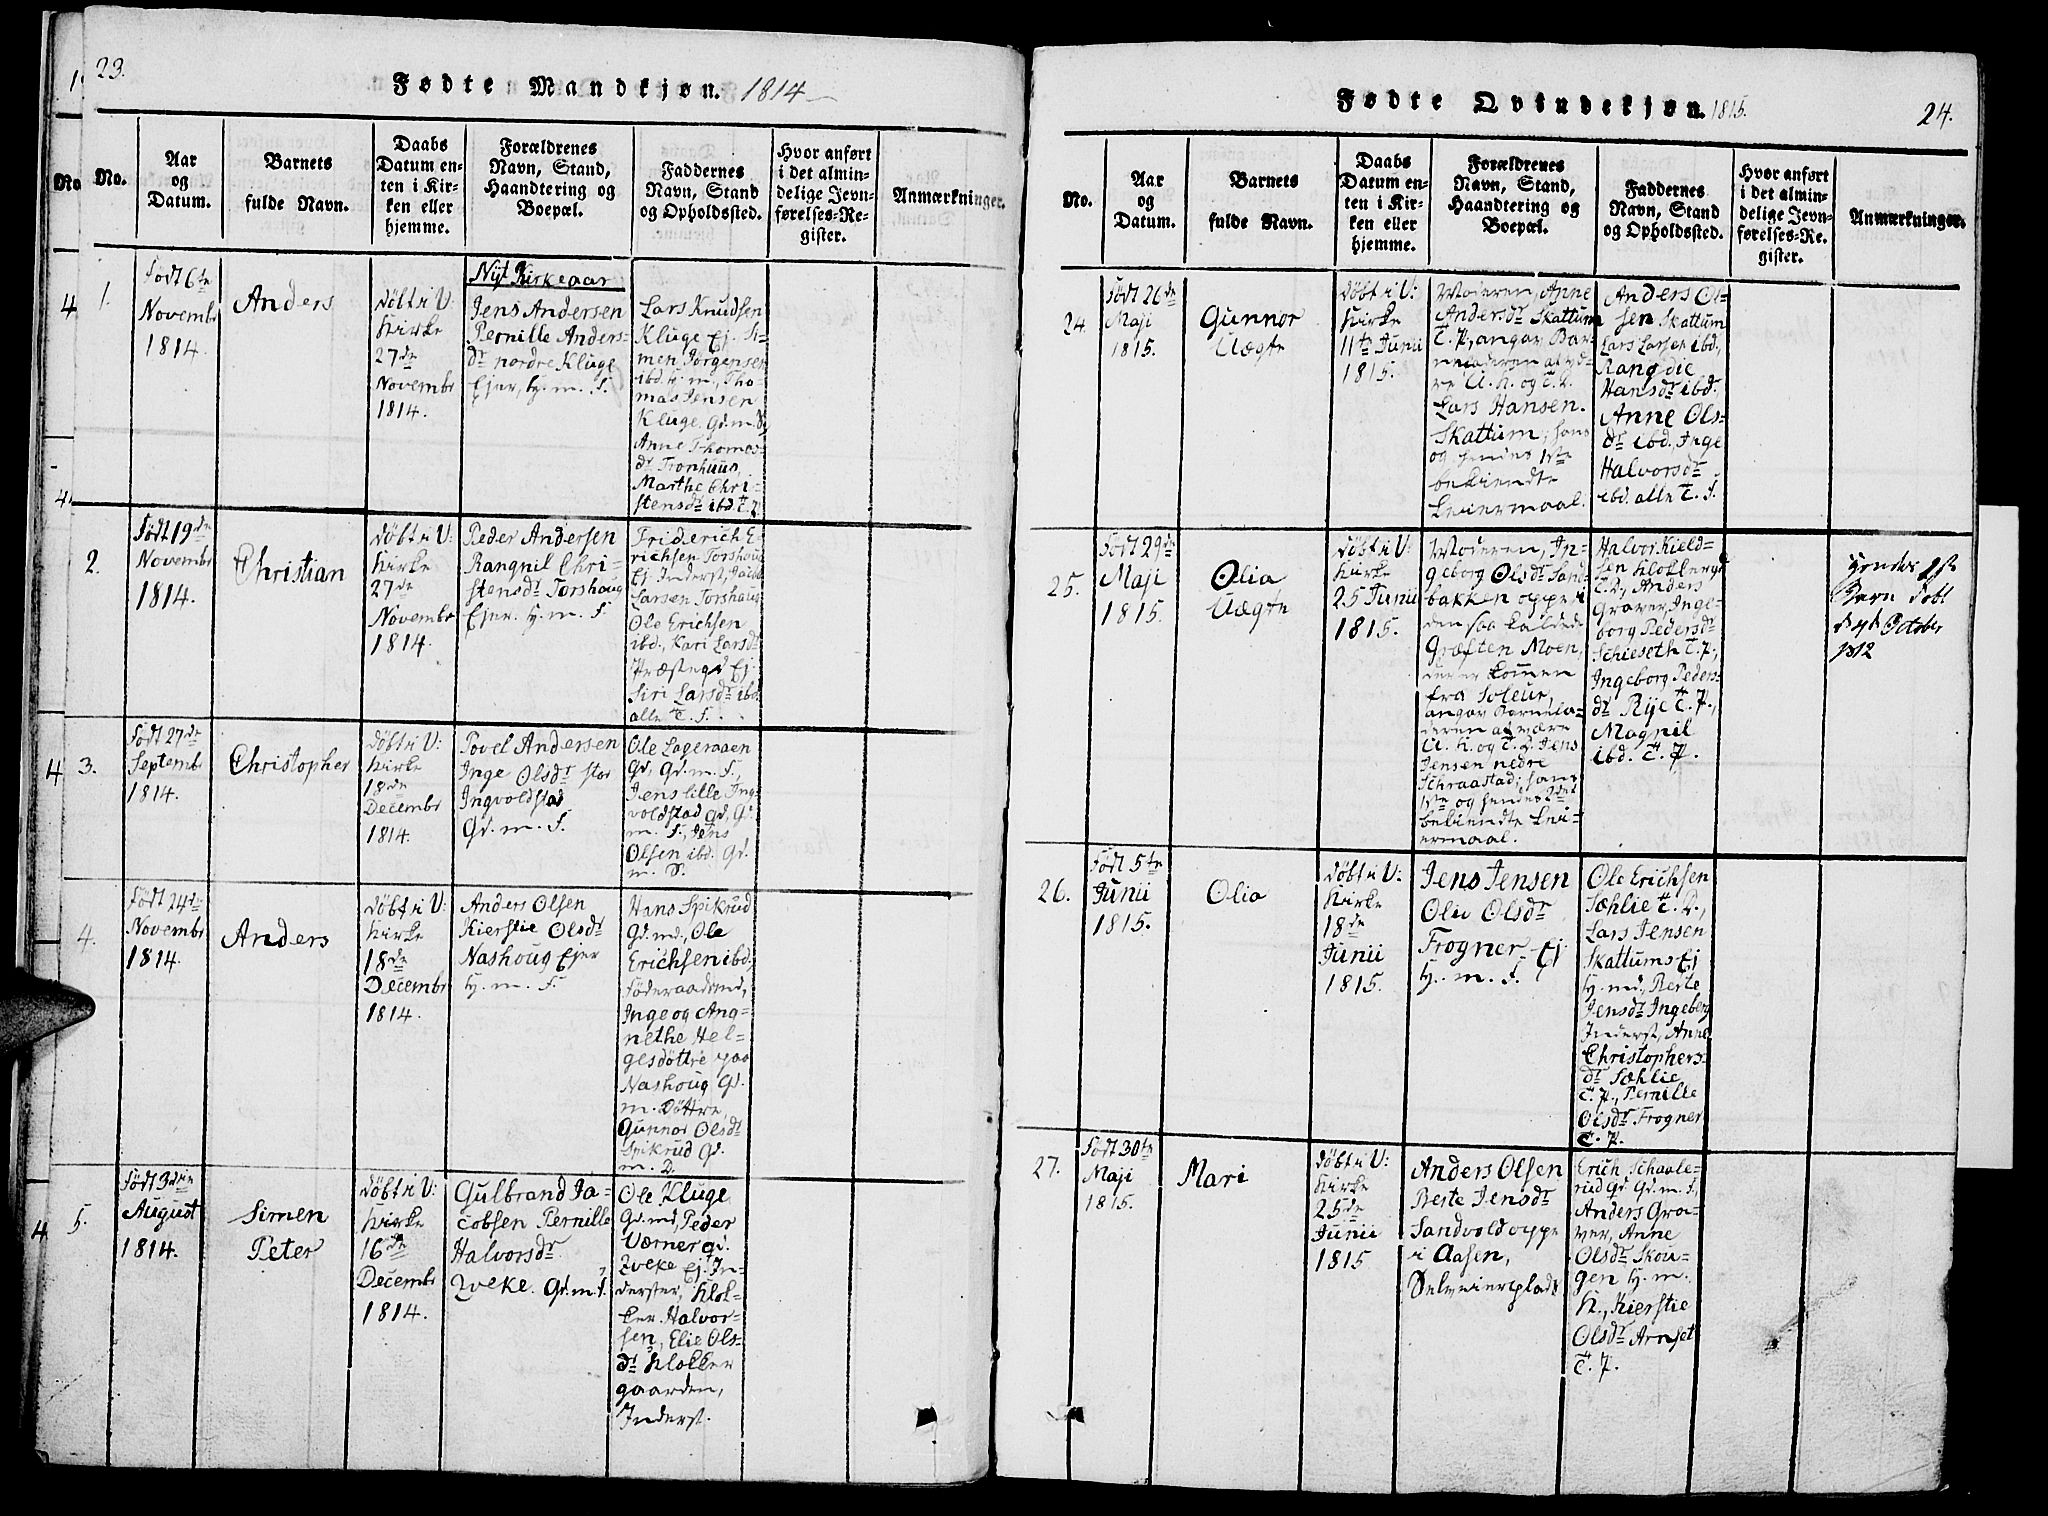 23.
Fødte Mandkjøn. 1814
No.
Aar
og
Datum.
Barnets
fulde Navn.
Daabs
Datum en-
ten i Kir-
ken eller
hjemme.
Forældrenes
Navn, Stand,
Haandtering og
Boepæl.
Faddernes
Navn, Stand
og Opholdssted.
Hvor anført
i det almin-
delige Jevn-
førelses-Re-
gister.
Anmærkninger.
1.
Født 6te
Novembr
1814.
Anders
Døbt i V:
Kirke
27de
Novembr
1814.
Nyt Kirkeaar
Jens Andersen
Pernille Anders-
dr nordre Kluge
Ejer, H. m. f.
Lars Knudsen
Kluge Ej. Si-
men Jørgensen
ibd. H. m., Tho-
mas Jensen
Kluge, Gd. m. S,
Anne Thomas-
dr Tronhuus,
Marthe Chri-
stensdr ibd. T. P.
2.
Født 19de
Novembr
1814.
Christian
Døbt i V:
Kirke
27de
Novembr
1814.
Peder Andersen
Rangnil Chri-
stensdr Torshaug
Ejer. H. m. f.
Friderich E-
richsen Torshaug
Ej. Inderst, Jacob
Larsen Torshaug
Ole Erichsen
ibd., Kari Larsdr
Præstegd Ej.
Siri Larsdr ibd.
alle T. f.
3.
Født 27de
Septembr
1814.
Christopher
Døbt i V:
Kirke
18de
Decembr
1814.
Povel Andersen
Inge Olsdr stor
Ingvoldstad
Gd. m. f.
Ole Lageraaen
Gd, Gd. m. f.,
Jens lille Ing-
voldstad Gd, Gd.
m. f., Jens
Olsen ibd. Gd.
m. S.
4.
Født 24de
Novembr
1814.
Anders
Døbt i V:
Kirke
18de
Decembr
1814.
Anders Olsen
Kierstie Olsdr
Nashoug Ejer
H. m. f.
Hans Spikrud
Gd. md., Ole
Erichsen ibd.
Føderaadsmd,
Inge og Ang-
nethe Hel-
gesdøttre paa
Nashoug Gd.
m. Døttre,
Gunnor Olsdr
Spikrud Gd.
m. D.
5.
Født 3die
August
1814.
Simen
Peter
Døbt i V:
Kirke
16de
Decembr
1814.
Gulbrand Ja-
cobsen Pernille
Halvorsdr
Qveke. Gd. m. f.
Ole Kluge
Gd. md, Peder
Værner gd.
Qveke Ej. In-
derster, Klok-
ker Halvor-
sen, Elie Ols-
dr Klokker
gaarden,
Inderst.
Fødte Qvindekjøn. 1815.
24.
No.
Aar
og
Datum.
Barnets
fulde Navn.
Daabs
Datum en-
ten i Kir-
ken eller
hjemme.
Forældrenes
Navn, Stand,
Haandtering og
Boepæl.
Faddernes
Navn, Stand
og Opholdssted.
Hvor anført
i det almin-
delige Jevn-
førelses-Re-
gister.
Anmærkninger.
24
Født 26de
Maji
1815.
Gunnor
Uægte
Døbt i V:
Kirke
11te Junii
1815.
Moderen, Anne
Andersdr Skattum
T. P., angav Bar-
nefaderen at væ-
re U. K. og T. K.
Lars Hansen
Skattum, hans
og hendes 1ste
bekiendte
Leiermaal.
Anders Ol-
sen Skattum
Lars Larsen ibd.,
Rangdie
Hansdr ibd.
Anne Ols-
dr ibd., Inge
Halvorsdr
ibd. alle T. f.
25.
Født 29de
Maji
1815.
Olia
Uægte
Døbt i V:
Kirke
25 Junii
1815.
Moderen, In-
geborg Olsdr Sand-
bakken oppe i
den saa kaldede
Græften Moen,
der er kommen
fra Soleur,
angav Barnefa-
deren at være
U. K. og T. D. Jens
Jensen nedre
Schraastad; hans
1ste og hendes 2det
bekiendte Lei-
ermaal.
Halvor Kield-
sen Klokkergd
T. D., Anders
Graver, Inge-
borg Pedersdr
Schieseth T. P.,
Ingeborg Peders-
dr Rye T. P.,
Magnil
ibd. T. P.
Hendes 1ste
Barn døbt
d 4d October
1812
26.
Født 5te
Junii
1815.
Olia
Døbt i V:
Kirke
18de
Junii
1815.
Jens Jensen
Olie Olsdr
Frogner Ej
H. m. f.
Ole Erichsen
Sæhlie T. D.,
Lars Jensen
Skattums Ej
H. md., Berte
Jensdr Ingeberg
Inderst, Anne
Christophers-
dr Sæhlie
T. P., Pernille
Olsdr Frogner
T. P.
27.
Født 30te
Maji
1815.
Mari
Døbt i V:
Kirke
25de
Junii
1815
Anders Olsen
Berte Jensdr
Sandvold oppe
i Aasen,
Selveierplads
Erich Schaale-
rud Gd. Gd. m. f.,
Anders Gra-
ver, Anne
Olsdr Skou-
gen H. m.
K., Kierstie
Olsdr Arnset
T. P.